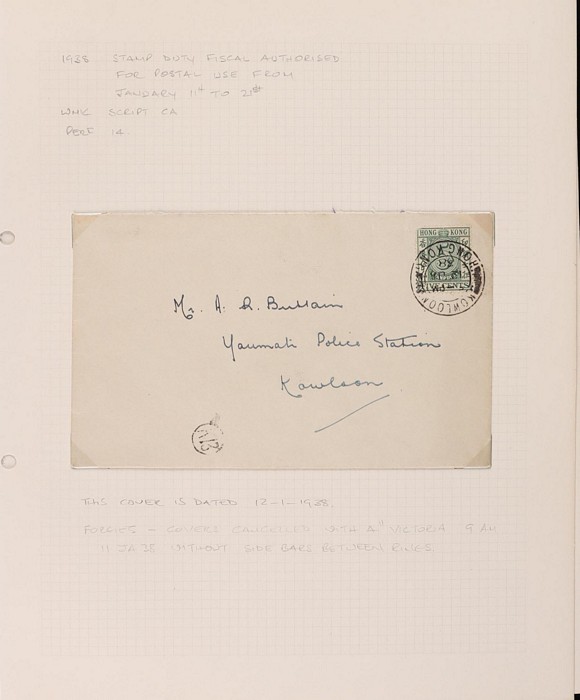 1938 STAMP DUTY FISCAL AUTHORISED
FOR POSTAL USE FROM
JANUARY 11th TO 21st
WMK SCRIPT CA
PERF 14.
HONG KONG
HONG KONG
KOWLOON
Mr. A. R. Brittain
Yaumati Police Station
Kowloon
THIS COVER IS DATED 12-1-1938.
FORGIES - COVERS CANCELLED WITH A "VICTORIA 9 AM
11 JA 38 WITHOUT SIDE BARS BETWEEN RINGS